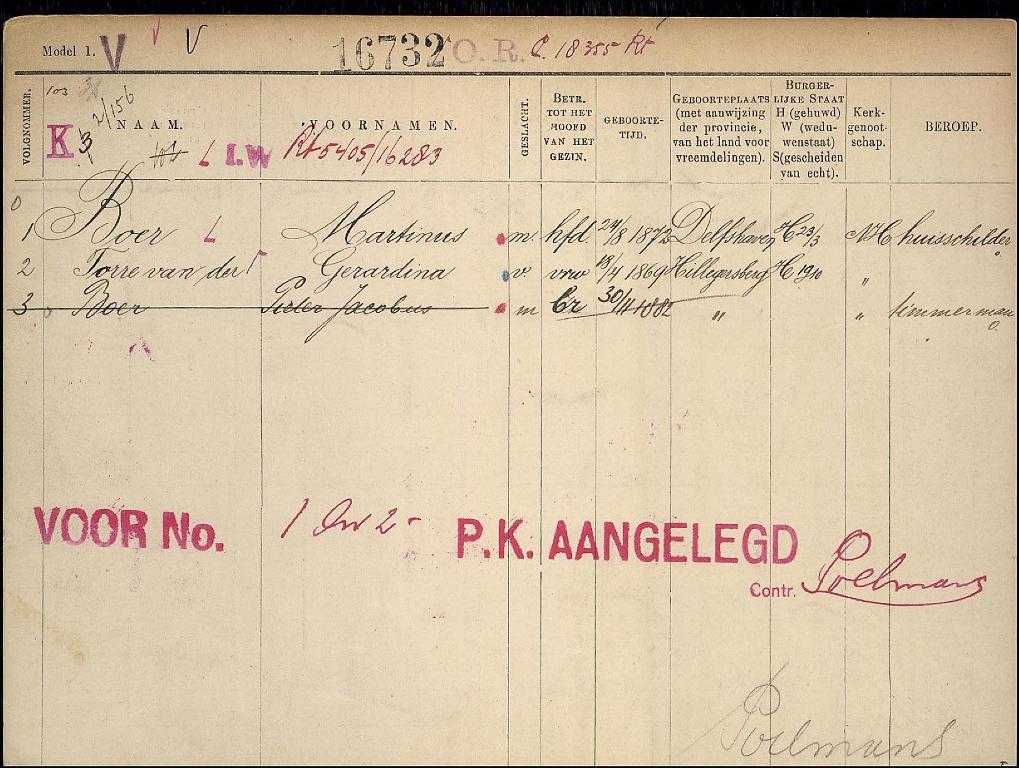 Model 1. V V V 16732 O. R. C. 18355 Rt
VOLGNOMMER.
NAAM.
VOORNAMEN.
GESLACHT.
BETR. TOT HET HOOFD VAN HET GEZIN.
GEBOORTE-TIJD.
GEBOORTEPLAATS (met aanwijzing der provincie, van het land voor vreemdelingen).
BURGER-LIJKE STAAT H (gehuwd) W (wedu-wenstaat) S (gescheiden van echt).
Kerk-genoot-schap.
BEROEP.
103 2/156
K 3 L I.W Rt 5405/16283
1 Boer L Martinus m hfd 24/8 1872 Delfshaven H 23/3 NH huisschilder
2 Torre van der Gerardina v vrw 19/4 1869 Hillegersberg H 19/10 "
3 Boer Pieter Jacobus m br 30/11 1882 " " timmerman
VOOR No. 1 en 2 - P.K. AANGELEGD
Contr. Poelmans
Poelmans